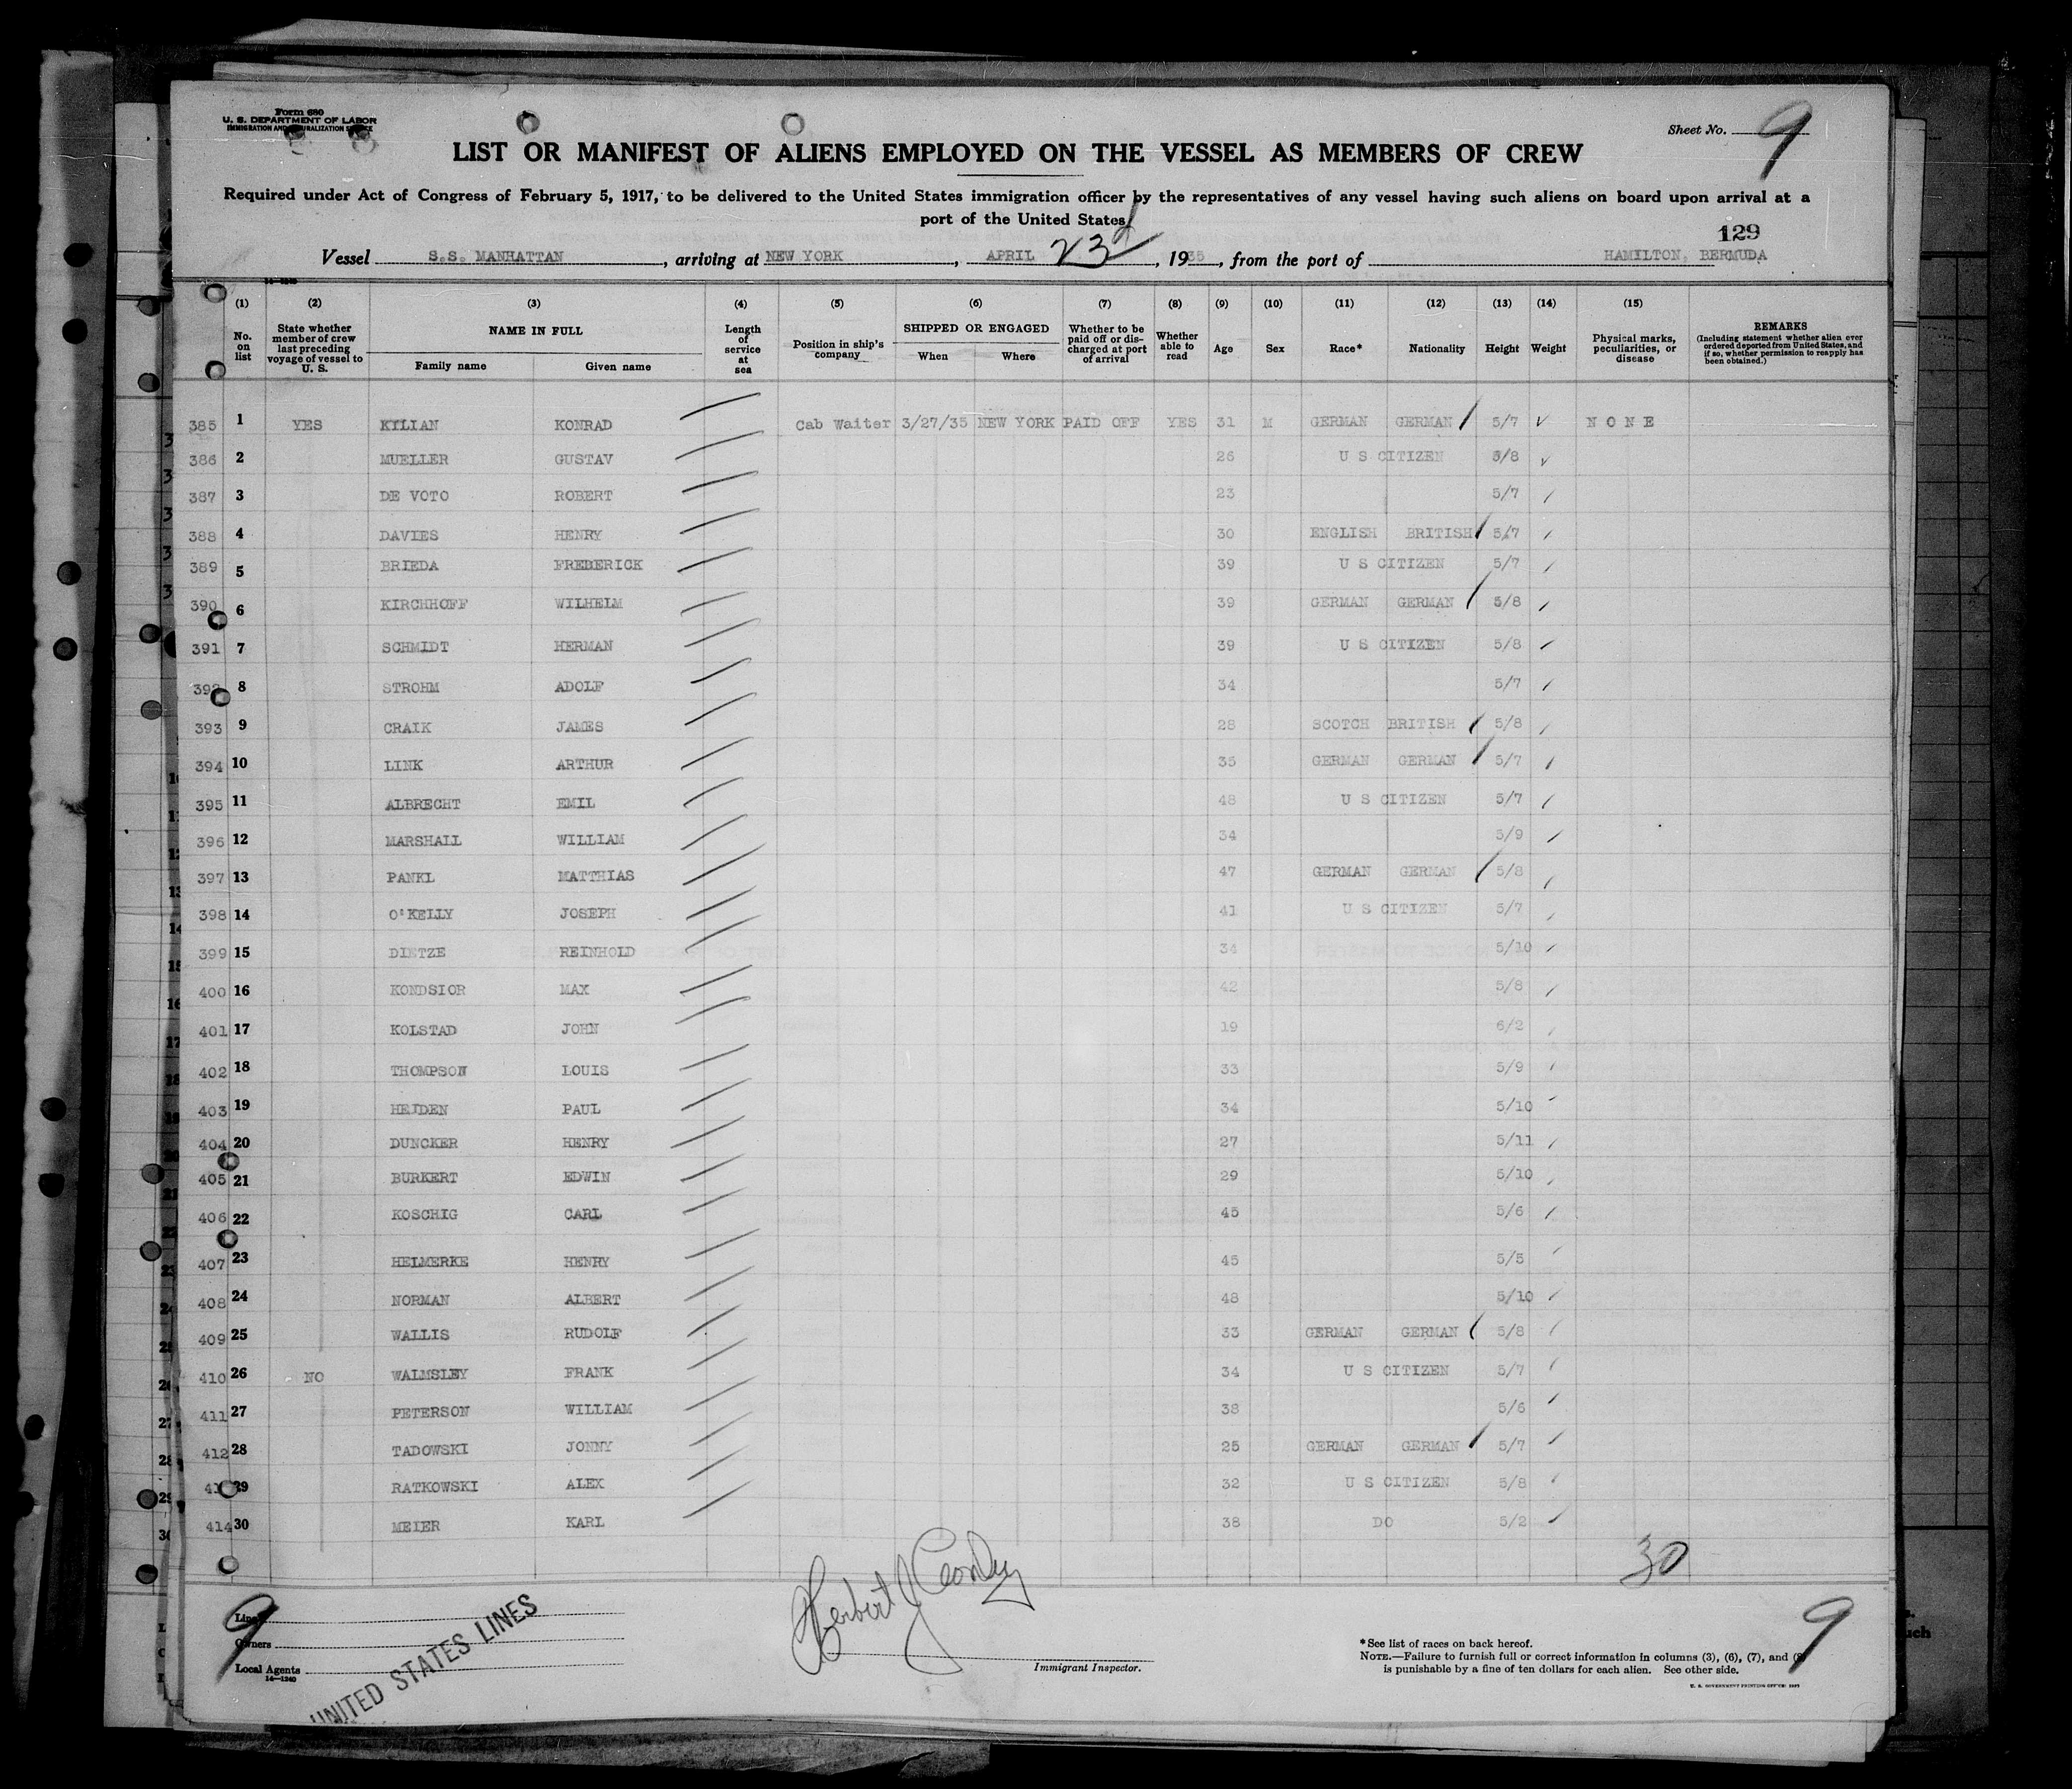 Form 680
U. S. DEPARTMENT OF LABOR
IMMIGRATION AND NATURALIZATION SERVICE
Sheet No. 9
LIST OR MANIFEST OF ALIENS EMPLOYED ON THE VESSEL AS MEMBERS OF CREW
Required under Act of Congress of February 5, 1917, to be delivered to the United States immigration officer by the representatives of any vessel having such aliens on board upon arrival at a
port of the United States
129
Vessel S.S. MANHATTAN, arriving at NEW YORK, APRIL 23d, 1935, from the port of HAMILTON, BERMUDA
14—1240
(1) (2) (3) (4) (5) (6) (7) (8) (9) (10) (11) (12) (13) (14) (15)
No. on list State whether member of crew last preceding voyage of vessel to U. S. NAME IN FULL Family name Given name Length of service at sea Position in ship's company SHIPPED OR ENGAGED When Where Whether to be paid off or discharged at port of arrival Whether able to read Age Sex Race* Nationality Height Weight Physical marks, peculiarities, or disease REMARKS (Including statement whether alien ever ordered deported from United States, and if so, whether permission to reapply has been obtained.)
385 1 YES KILIAN KONRAD Cab Waiter 3/27/35 NEW YORK PAID OFF YES 31 M GERMAN GERMAN 5/7 NONE
386 2 MUELLER GUSTAV 26 U S CITIZEN 5/8
387 3 DE VOTO ROBERT 23 5/7
388 4 DAVIES HENRY 30 ENGLISH BRITISH 5/7
389 5 BRIEDA FREDERICK 39 U S CITIZEN 5/7
390 6 KIRCHHOFF WILHELM 39 GERMAN GERMAN 5/8
391 7 SCHMIDT HERMAN 39 U S CITIZEN 5/8
392 8 STROHM ADOLF 34 5/7
393 9 CRAIK JAMES 28 SCOTCH BRITISH 5/8
394 10 LINK ARTHUR 35 GERMAN GERMAN 5/7
395 11 ALBRECHT EMIL 48 U S CITIZEN 5/7
396 12 MARSHALL WILLIAM 34 5/9
397 13 PANKL MATTHIAS 47 GERMAN GERMAN 5/8
398 14 O'KELLY JOSEPH 41 U S CITIZEN 5/7
399 15 DIETZE REINHOLD 34 5/10
400 16 KONDSIOR MAX 42 5/8
401 17 KOLSTAD JOHN 19 6/2
402 18 THOMPSON LOUIS 33 5/9
403 19 HEIDEN PAUL 34 5/10
404 20 DUNCKER HENRY 27 5/11
405 21 BURKERT EDWIN 29 5/10
406 22 KOSCHIG CARL 45 5/6
407 23 HELMERKE HENRY 45 5/5
408 24 NORMAN ALBERT 48 5/10
409 25 WALLIS RUDOLF 33 GERMAN GERMAN 5/8
410 26 NO WALMSLEY FRANK 34 U S CITIZEN 5/7
411 27 PETERSON WILLIAM 38 5/6
412 28 TADOWSKI JONNY 25 GERMAN GERMAN 5/7
29 RATKOWSKI ALEX 32 U S CITIZEN 5/8
414 30 MEIER KARL 38 DO 5/2
30
9
Line
Owners
Local Agents
14—1240
UNITED STATES LINES
Herbert J
Immigrant Inspector.
*See list of races on back hereof.
NOTE.—Failure to furnish full or correct information in columns (3), (6), (7), and
is punishable by a fine of ten dollars for each alien. See other side.
U. S. GOVERNMENT PRINTING OFFICE
9